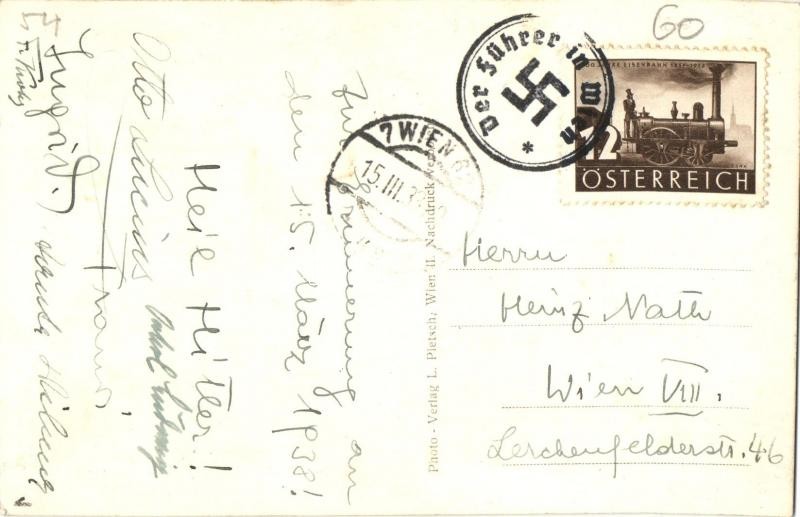 60
Der Führer in Wien
100 JAHRE EISENBAHN 1837-1937
12
ÖSTERREICH
7 WIEN 6
15. III. 38
Herrn
Heinz Nath
Wien VIII.
Lerchenfelderstr. 46
Photo - Verlag L. Pietsch, Wien II. Nachdruck
Zur Erinnerung an
den 15. März 1938!
Heil Hitler!
Franz.
Otto
Ingrid.